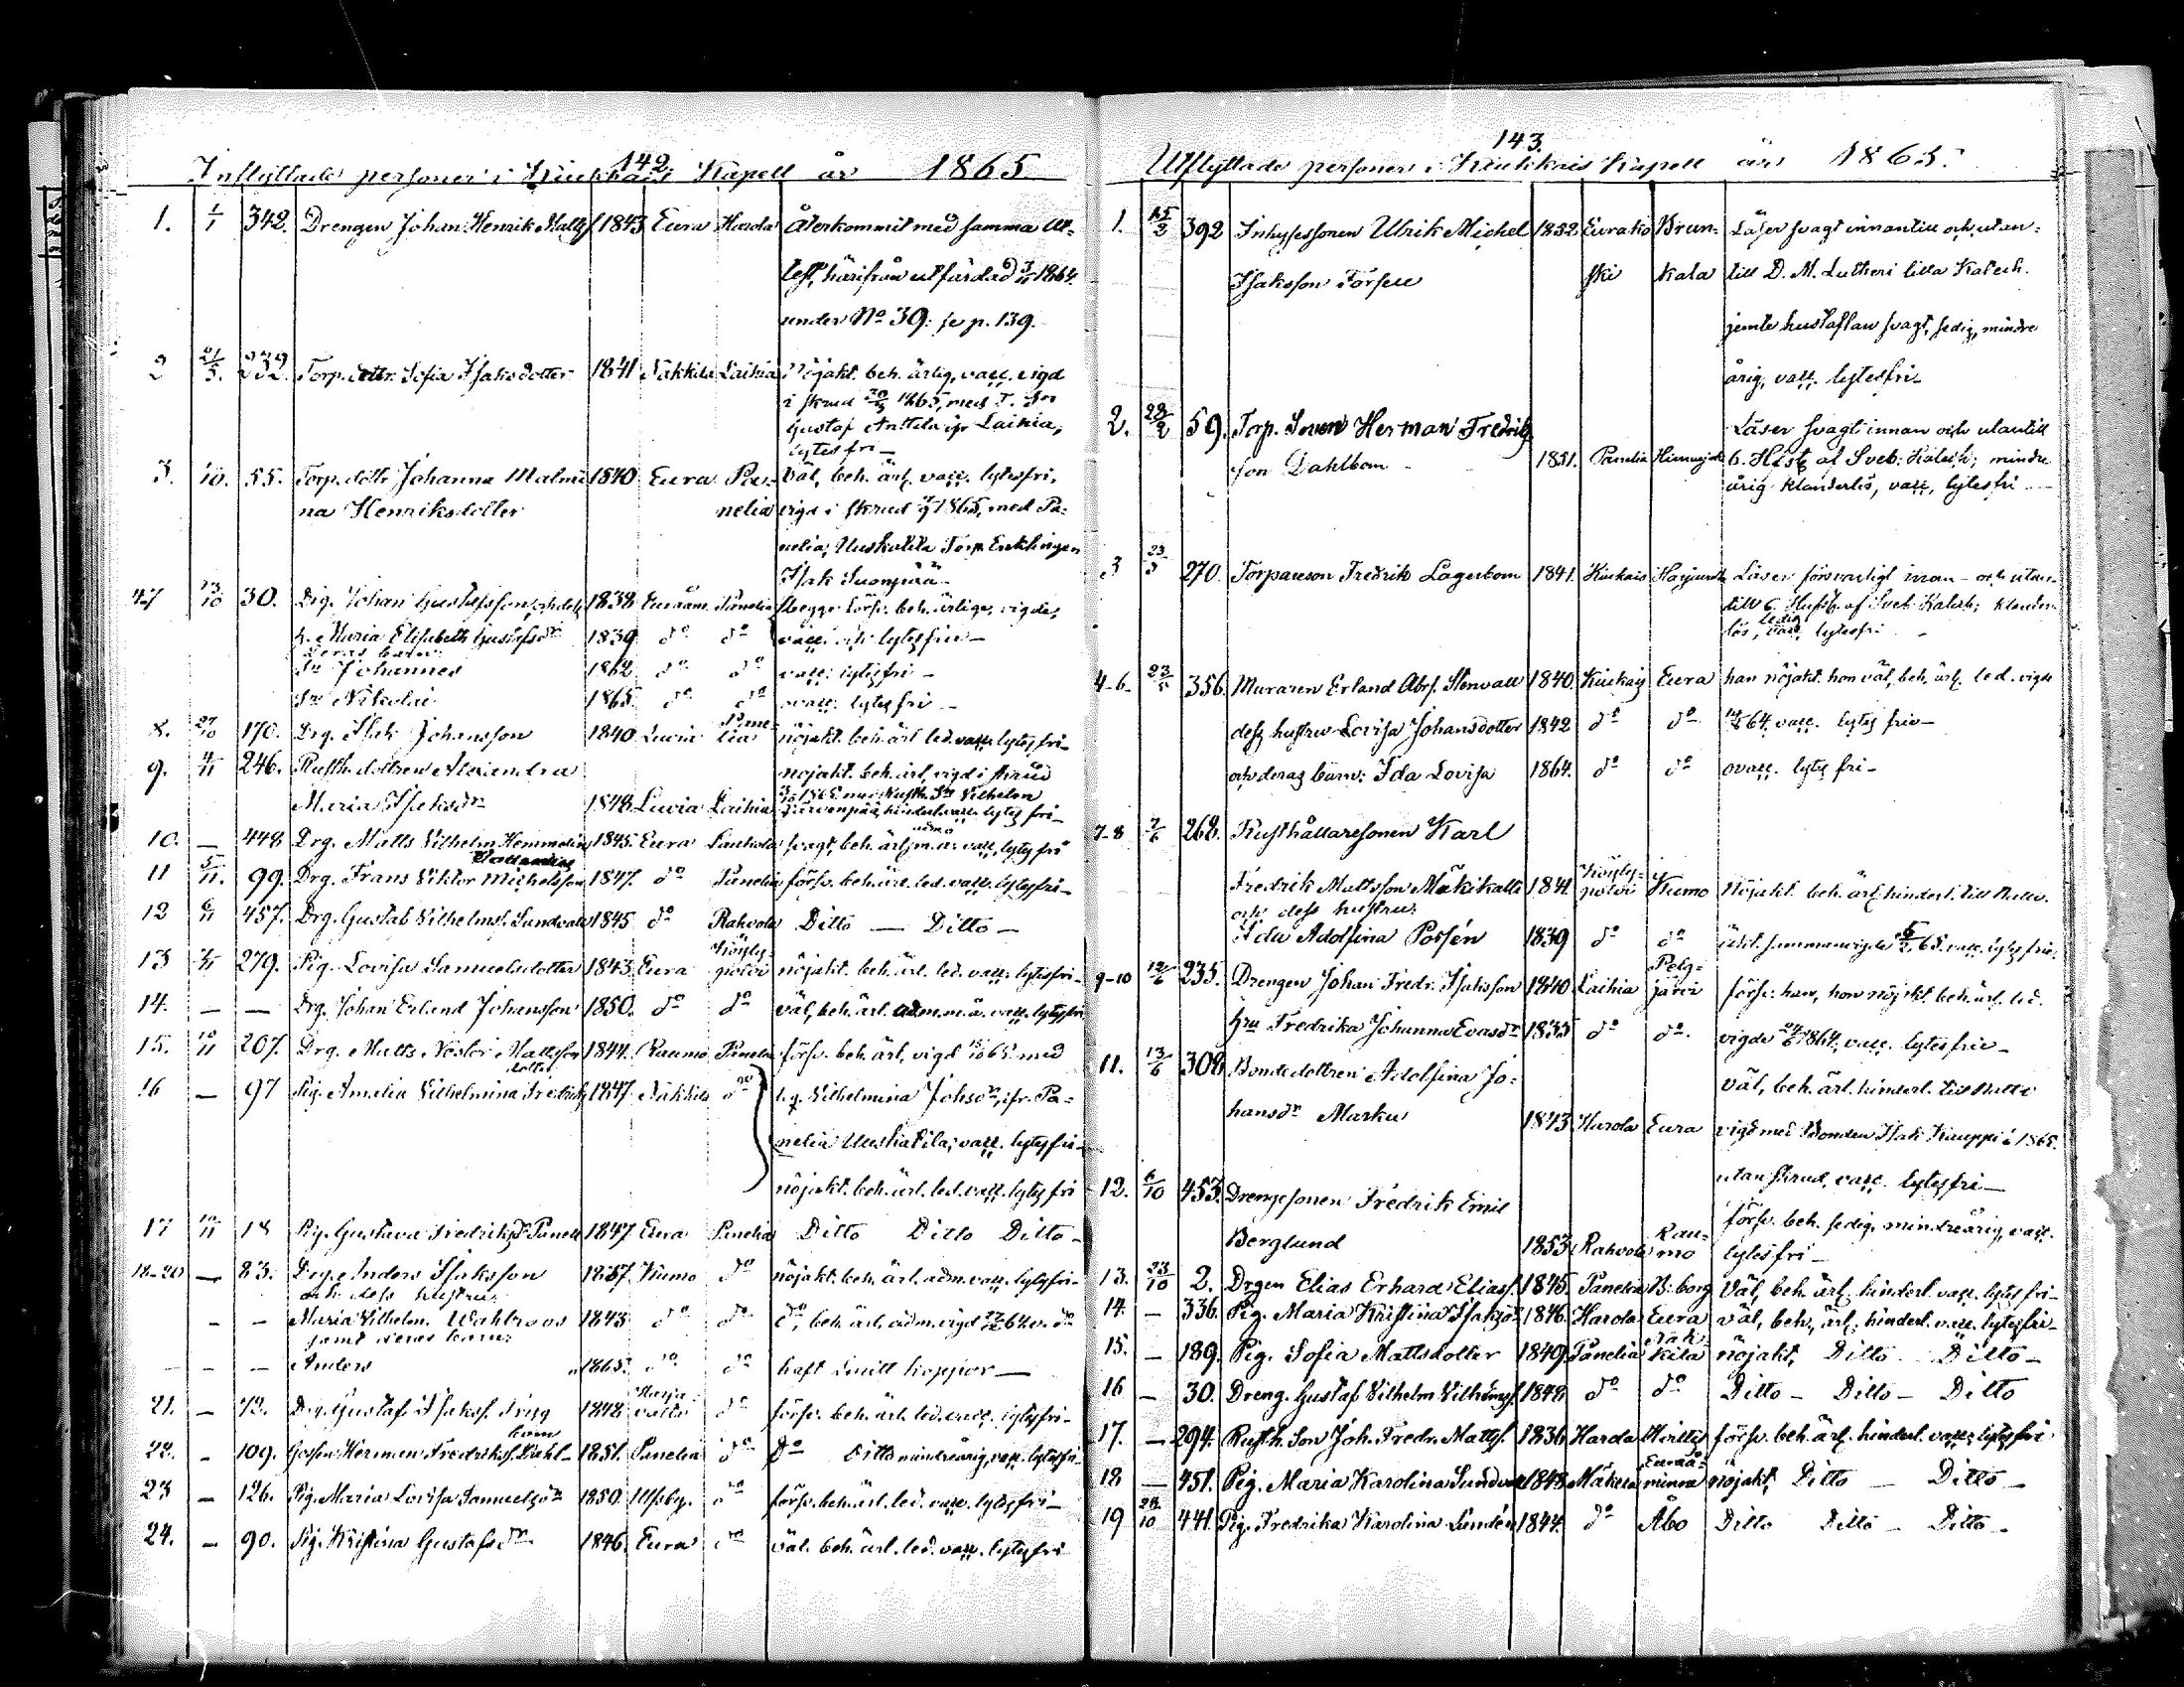 142.
Inflyttade personer i Kiukkais Kapell år 1865
1. 1/1 342. Drengen Johan Henrik Mattsf 1843 Eura Harola Återkommit med samma At-
test, härifrån utfärdad 1864.
under No 39: se p. 139.
2 21/5. 232. Torp. dottr. Sofia Isaksdotter 1841 Nakkila Laihia Nöjakt. beh. ärlig, vacc. vigd
i skrud 1865, med T. Sn
Gustaf Anttila ifr Laihia,
lytesfri —
3. 10. 55. Torp. dottr Johanna Malmi 1840 Eura Pa- Väl, beh. ärl. vacc. lytesfri,
na Henriksdotter nelia vigd i skrud 1865, med Pa-
nelia, Uuskatila Torp. Enklingen
Isak Suonpää
4-7 23/10 30. Drg. Johan Gustafsson, och dess 1838 Euraåm. Panelia begge förs. beh. ärlige, vigde,
h. Maria Elisabeth Gustafsdr 1839 do do vacc. och lytesfrie —
Deras barn:
Sn Johannes 1862 do do vacc. lytesfri —
Sn Nikolai 1865. do do ovacc. lytesfri —
8. 27/10 170. Drg. Isak Johansson 1840 Luvia Pane-
lia nöjakt. beh. ärl. led. vacc. lytesfri —
9. 4/11 246. Rusth. dottren Alexandra nöjakt. beh. ärl, vigd i skrud
Maria Isaksdr 1848 Luvia Laihia 1865 med Rusth. Sn Vilhelm
Järvenpää, hinderl. vacc. lytesfri —
10. — 448 Drg. Matts Vilhelm Hemmelin 1845. Eura Lauhola svagt, beh. ärl. m. å. vacc. lytesfri
11 5/11. 99. Drg. Frans Viktor Michelsson 1847. do Panelia förs. beh. ärl. led. vacc. lytesfri —
12 6/11 457. Drg. Gustaf Vilhelmsf. Sundvall 1845 do Rahvola Ditto — Ditto —
13 7/11 279. Pig. Lovisa Samuelsdotter 1843. Eura Köyly-
polvi nöjakt. beh. ärl. led. vacc. lytesfri —
14. — — Drg. Johan Erland Johansson 1850. do do väl, beh. ärl. adm. m. å. vacc. lytesfri
15. 10/11 207. Drg. Matts Nestor Mattsson 1844. Raumo Panelia förs. beh. ärl, vigd 65. med
16 — 97 Pig. Amelia Vilhelmina Fredriks
dotter 1847 Nakkila do h. q. Vilhelmina Johsdr, ifr. Pa-
nelia Uuskatila, vacc. lytesfri —
nöjakt. beh. ärl. led. vacc. lytesfri
17 18 Pig. Gustava Fredriksdr 1847 Eura Panelia Ditto Ditto Ditto —
18-20 — 83. Drg. Anders Isaksson 1837. Kumo do nöjakt. beh. ärl. adm. vacc. lytesfri —
och dess hustru
- - Maria Vilhelm. Wahlroos 1843 do do do, beh. ärl. adm. vigd 64 v. do
samt deras barn:
- - - Anders 1865. do do haft Smitt koppor —
21. — 72. Drg. Gustaf Isaksf. Trygg 1848 Harja-
valta do förs. beh. ärl. led. vacc. lytesfri —
22. - 109. Gossen Herman Fredriksf. Dahl-
bom 1851. Panelia do Do Ditto mindreårig, vacc. lytesfri —
23 — 126. Pig. Maria Lovisa Samuelsdr 1850 Ulfsby. do förs. beh. ärl. led. vacc. lytesfri —
24. — 90. Pig. Kristina Gustafsdr 1846. Eura do väl. beh. ärl. led. vacc. lytesfri
143.
Utflyttade personer i Kiukkais Kapell år 1865.
1. 15/2 392 Inhysessonen Ulrik Michel 1852 Eurako Krun- Läser svagt innantill och utan-
Isaksson Forsell ski kala till D. M. Lutheri lilla Katech.
jemte hustaflan svagt, sedig, mindre
årig, vacc. lytesfri —
2. 28/2 59. Torp. Sonen Herman Fredriks Läser svagt innan och utantill
son Dahlbom 1851. Panelia 6. Hufst. af Sveb. Katech; mindre
årig klanderlös, vacc, lytesfri —
3 23/3 270. Torpareson Fredrik Lagerbom 1841. Kiukais Harjavalta Läser försvarligt innan- och utan-
till 6. Hufst. af Sveb. Katech; klander-
lös, ledig vacc. lytesfri
4-6- 23/5 356. Muraren Erland Abrf. Stenvall 1840. Kiukais Eura han nöjakt. hon väl, beh. ärl. led. vigde
dess hustru Lovisa Johansdotter 1842 do do 64. vacc. lytes frie —
och deras barn: Ida Lovisa 1864. do do ovacc. lytes fri —
7-8 7/6 262. Rusthållaresonen Karl
Fredrik Mattsson Mäkikalli 1841. Köyly-
polvi Kumo Nöjakt. beh. ärl. hinderl. till Nattv.
och dess hustru
Ida Adolfina Porsén 1839 do do äkt. sammanvigde 65. vacc. lytes frie.
9-10 12/6 235. Drengen Johan Fredr. Isaksson 1840 Laihia Pelg-
järvi förs: han, hon nöjakt. beh. ärl. led.
hru Fredrika Johanna Evasdr 1835 do do. vigde 1864, vacc. lytesfrie —
11. 13/6 308 Bondedottren Adolfina Jo- Väl, beh. ärl. hinderl. till Nattv
hansdr Marku 1843 Harola Eura vigd med Bonden Isak Kauppi 1865.
utan skrud, vacc. lytesfri —
12. 6/10 453. Drengesonen Fredrik Emil förs. beh. sedig, mindreårig, vacc.
Berglund 1853 Rahvola Rau-
mo lytesfri —
13. 23/10 2. Drgen Elias Erhard Eliasf. 1845. Panelia B:borg Väl, beh. ärl. hinderl. vacc. lytesfri —
14. — 336. Pig. Maria Kristina Isaksdr 1846. Harola Eura väl, beh., ärl., hinderl. vacc. lytesfri —
15. — 189. Pig. Sofia Mattsdotter 1849. Panelia Nak-
kila nöjakt, Ditto Ditto —
16 — 30. Dreng. Gustaf Vilhelm Vilhelmsf. 1848 do do Ditto — Ditto — Ditto
17. — 294. Rusth. Son Joh. Fredr. Mattsf. 1836 Harola förs. beh. ärl. hinderl. vacc, lytesfri
18 — 451. Pig. Maria Karolina Sundvall 1848 Mäkelä Euraå-
minne nöjakt, Ditto — Ditto —
19 28/10 441. Pig. Fredrika Karolina Lundén 1844. do Åbo Ditto Ditto — Ditto —